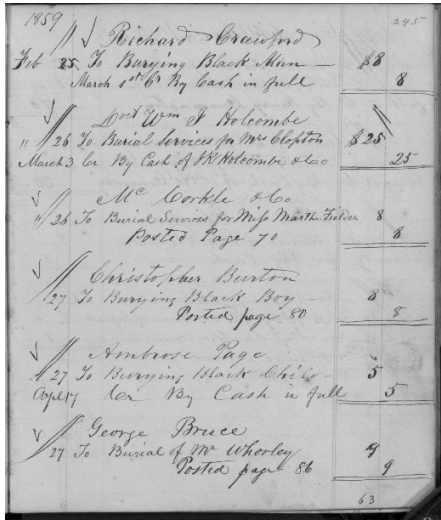 1859 295
Richard Crawford
Feb 25 To Burying Black Man — $8
March 1st Cr By Cash in full 8
Doct Wm J Holcombe
" 26 To Burial Services for Mrs Clopton $25
March 3 Cr By Cash of JR Holcombe & Co 25
Mc Corkle & Co
" 26 To Burial Services for Miss Martha Fielder 8
Posted Page 70 8
Christopher Burton
27 To Burying Black Boy — 8
Posted page 80 8
Ambrose Page
27 To Burying Black Child — 5
Apl 17 Cr By Cash in full 5
George Bruce
27 To Burial of Mr Whorley 9
Posted page 86 9
63